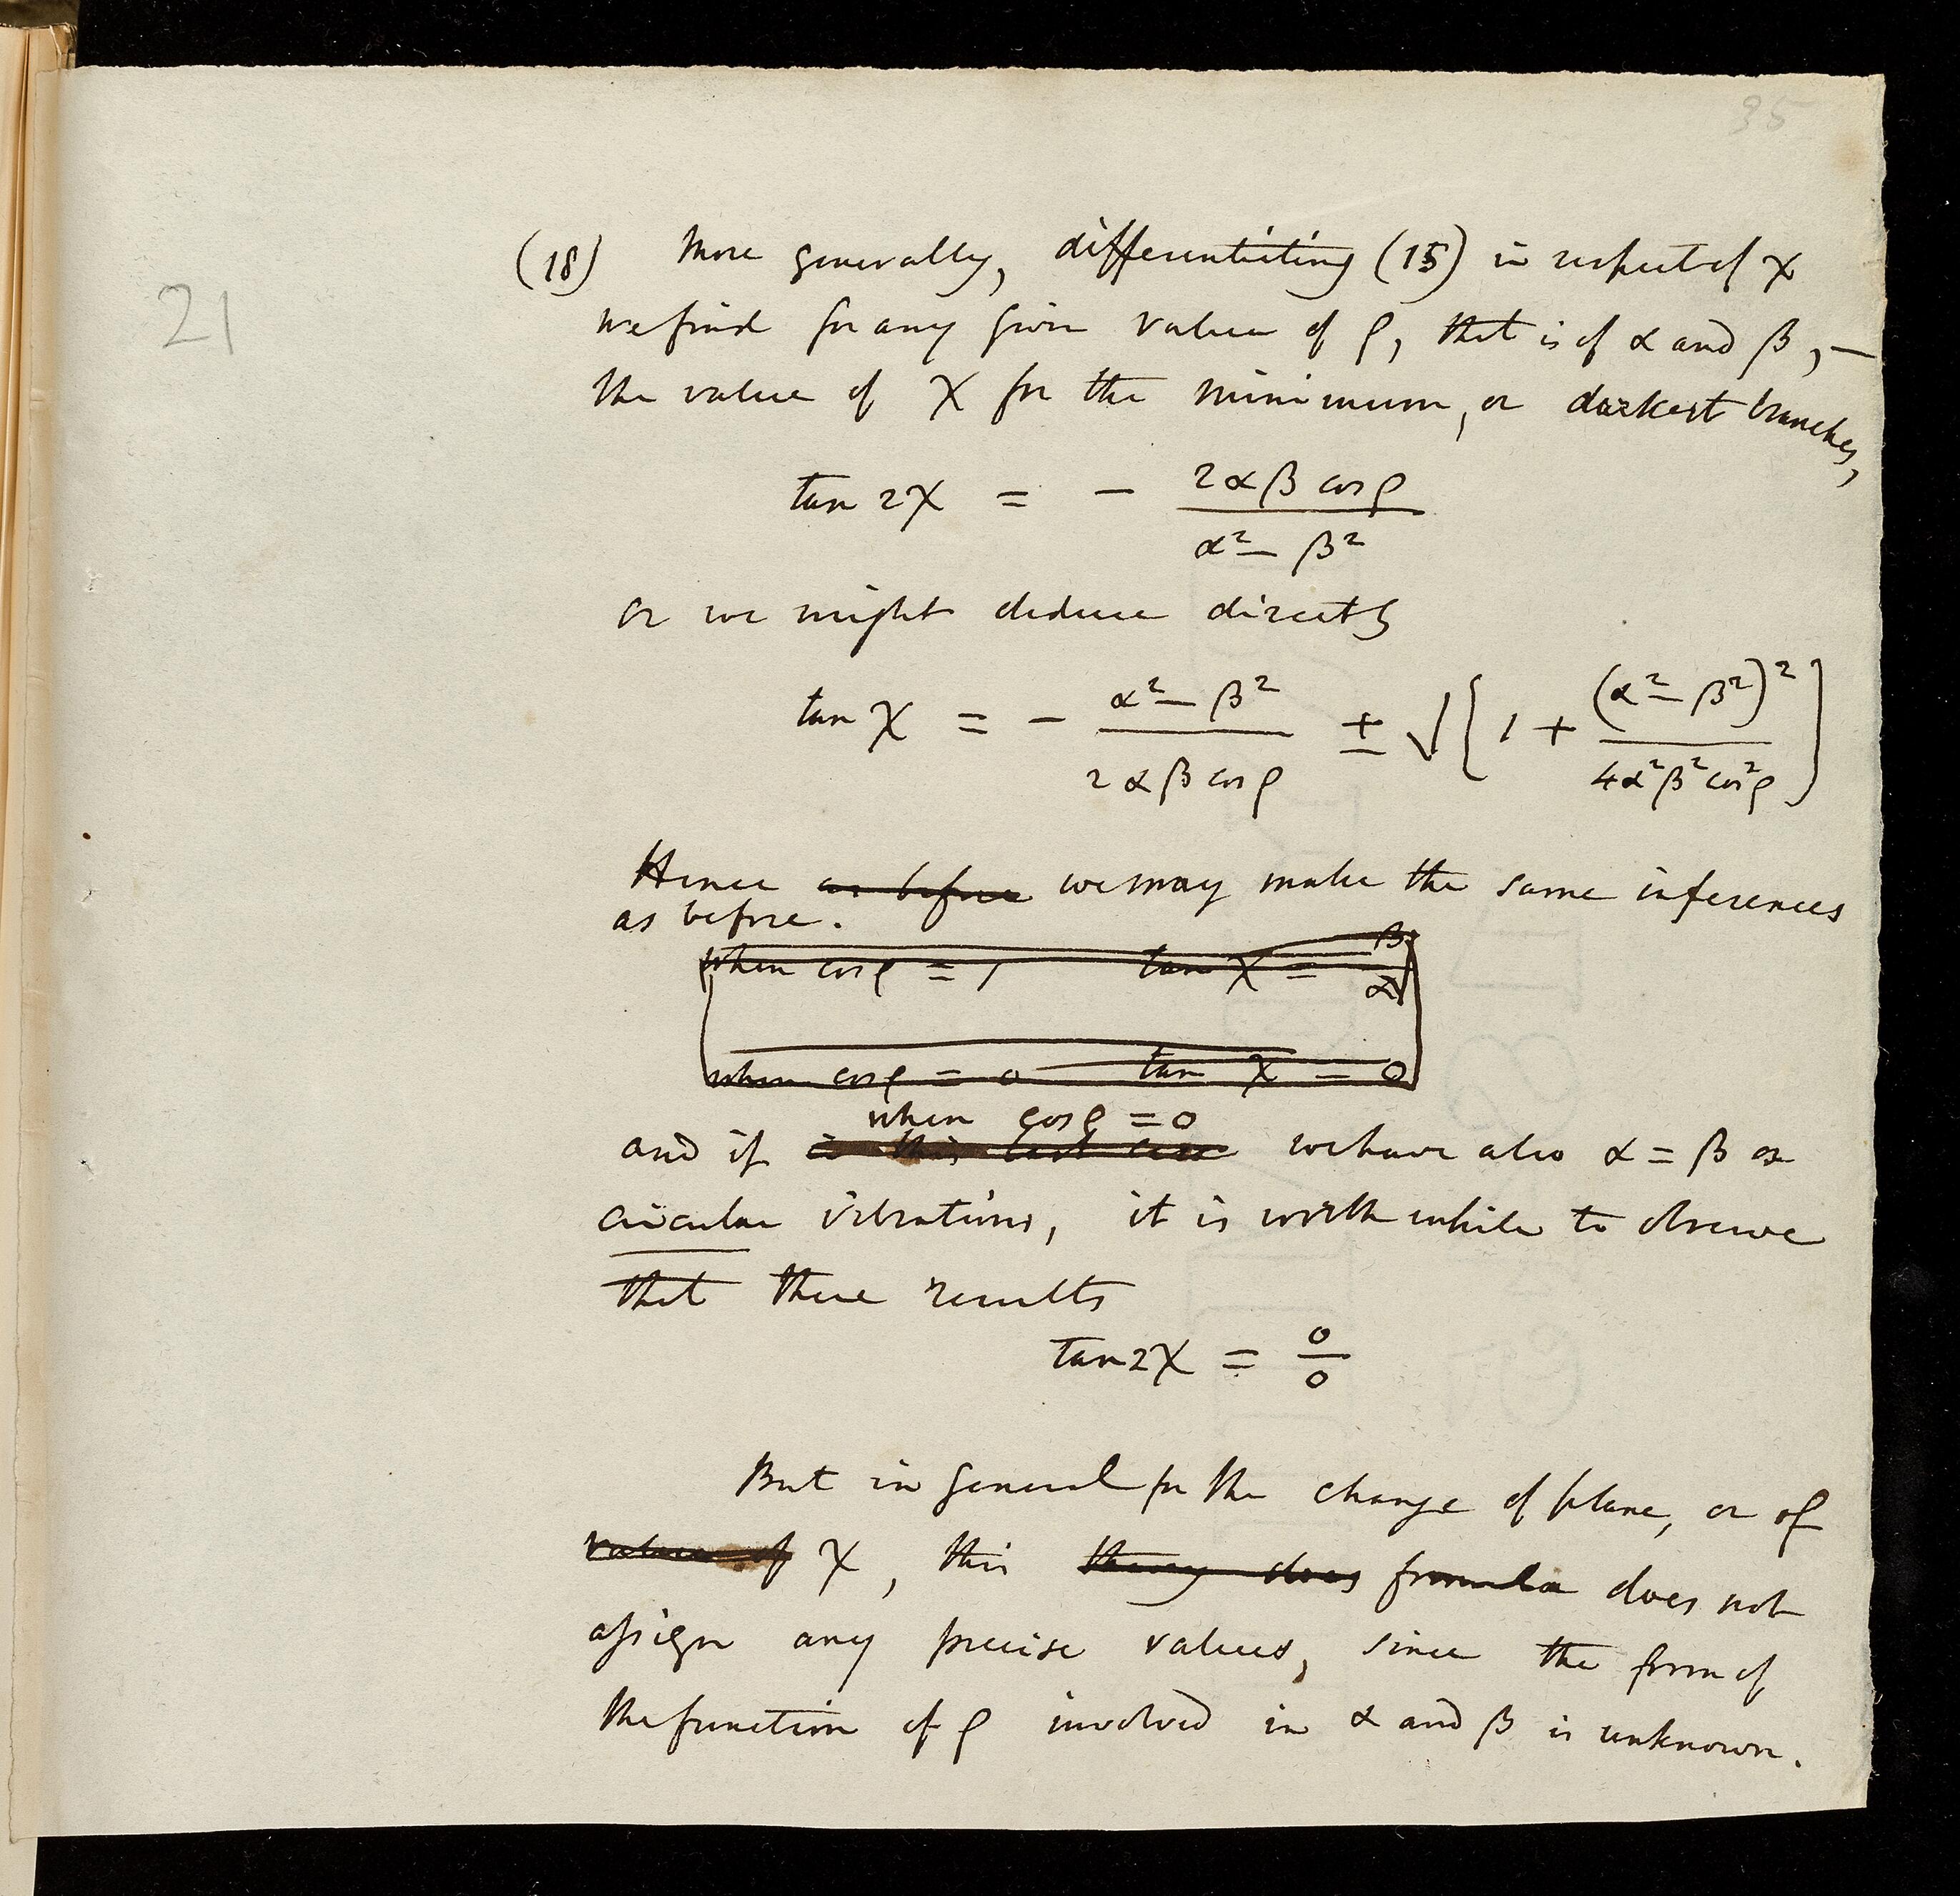 35
21
(18) More generally, differentiating (15) in respect of χ
we find for any given value of ρ, that is of α and β, —
the value of χ for the minimum, or darkest branches,
tan 2χ = - 2αβ cos ρ / α² - β²
or we might deduce directly
tan χ = - α² - β² / 2αβ cos ρ ± √{1 + (α² - β²)² / 4α²β²cos²ρ}
Hence as before we may make the same inferences
as before.
when cos ρ = 1 tan χ = β/α
when cos ρ = 0 tan χ = 0
when cos ρ = 0
and if in this last case we have also α = β or
circular vibrations, it is worth while to observe
that there results
tan 2χ = 0/0
But in general for the change of plane, or of
values of χ, this theory does formula does not
assign any precise values, since the form of
the function of ρ involved in α and β is unknown.